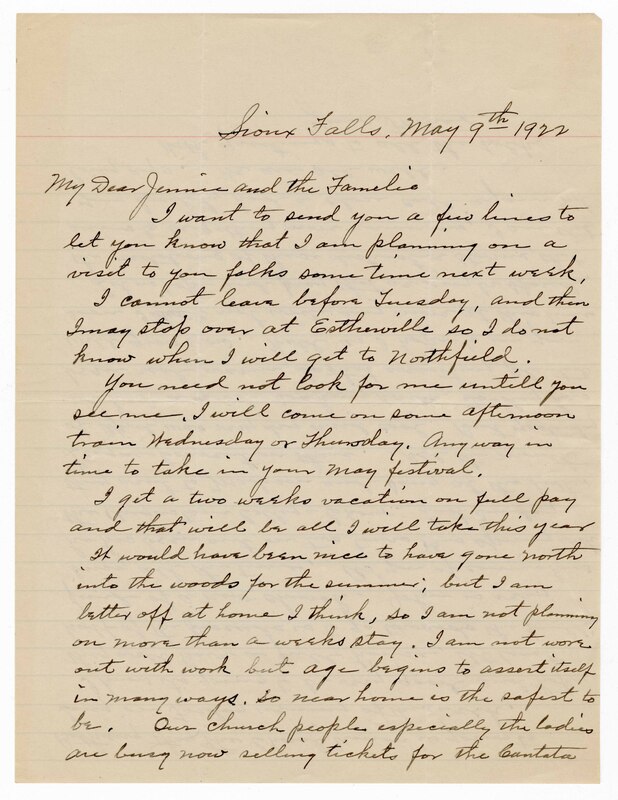 Sioux Falls, May 9th 1922
My Dear Jennie and the Famelie
I want to send you a few lines to
let you know that I am planning on a
visit to you folks some time next week,
I cannot leave before Tuesday, and then
I may stop over at Estherville so I do not
know when I will get to Northfield.
You need not look for me untill you
see me. I will come on some afternoon
train Wednesday or Thursday. Any way in
time to take in your May festival.
I get a two weeks vacation on full pay
and that will be all I will take this year
It would have been nice to have gone north
into the woods for the summer, but I am
better off at home I think, so I am not planning
on more than a weeks stay. I am not wore
out with work but age begins to assert itself
in many ways. so near home is the safest to
be. Our church people especially the ladies
are busy now selling tickets for the Cantata